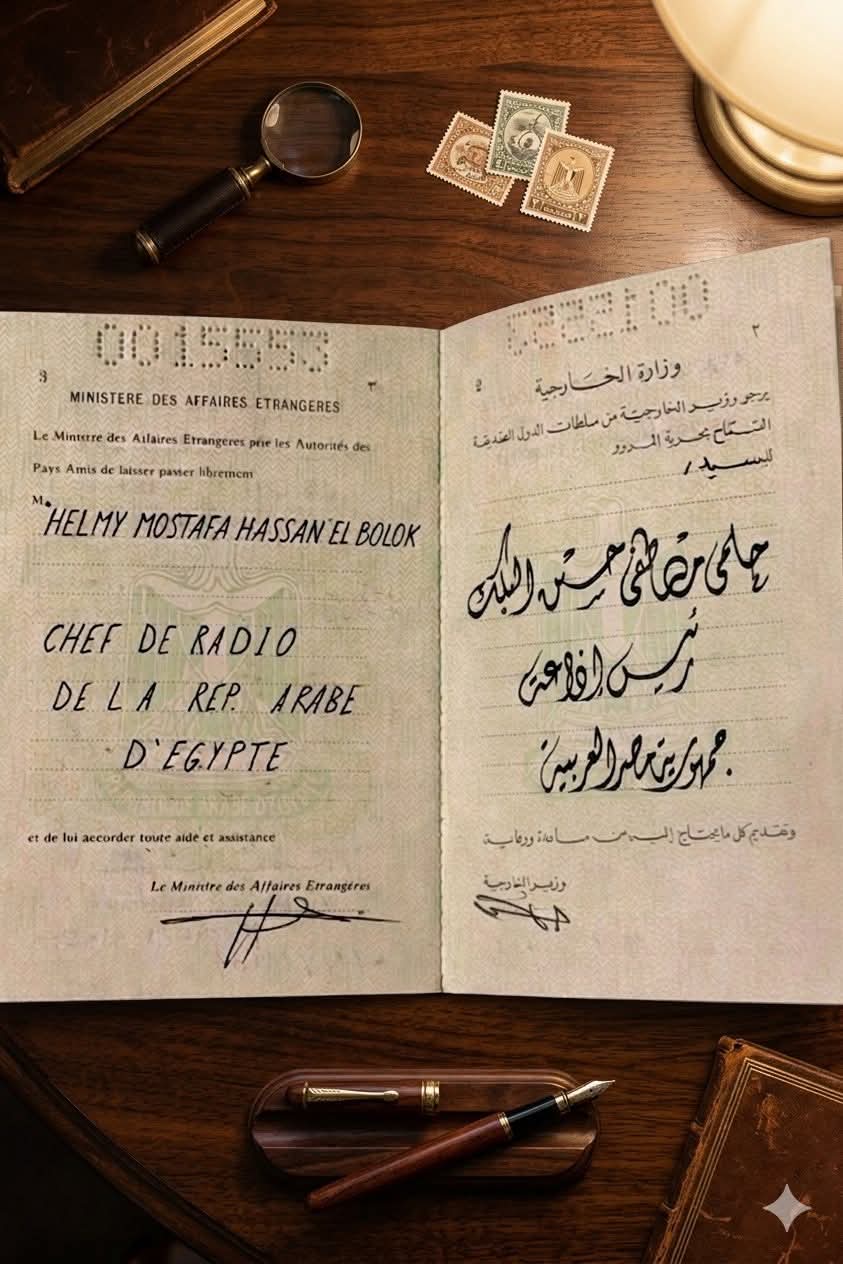 0015553
3 ٣
MINISTERE DES AFFAIRES ETRANGERES
Le Mintrre des Ailaires Etrangeres prie les Autorités des
Pays Amis de laisser passer librement
M.
HELMY MOSTAFA HASSAN EL BOLOK
CHEF DE RADIO
DE LA REP. ARABE
D'EGYPTE
et de lui accorder toute aide et assistance
Le Minirre des Affaires Etrangéres
2 ٢
وزارة الخارجية
يرجو وزير الخارجية من سلطات الدول الصديقة
التسماح بحرية المرور
للسيد /
حلمى مصطفى حسن البلك
رئيس إذاعة
جمهورية مصر العربية
وتقديم كل ما يحتاج إليه من مساعدة ورعاية
وزير الخارجية